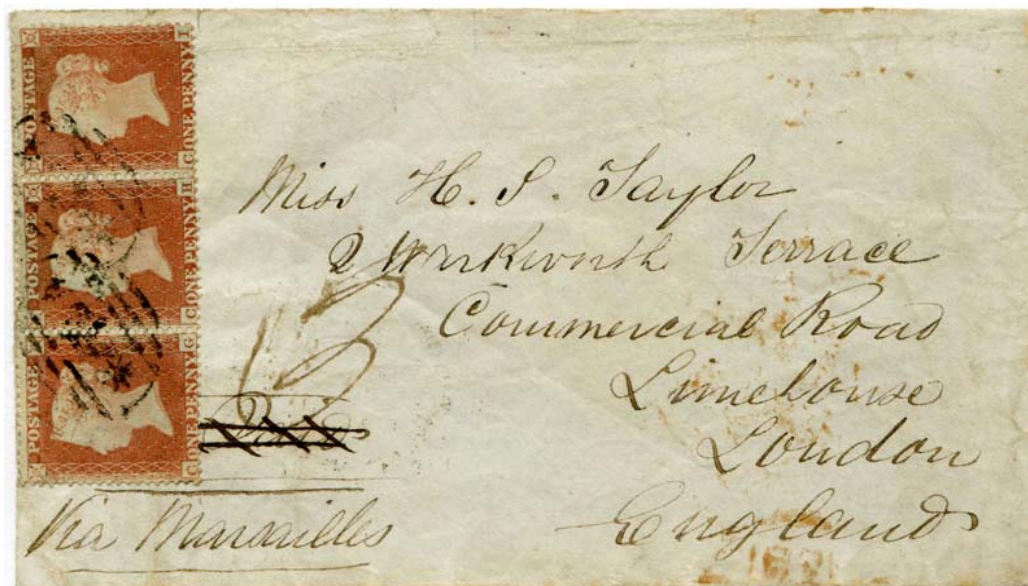 POSTAGE
ONE PENNY
POSTAGE
ONE PENNY
POSTAGE
ONE PENNY
Miss H. S. Taylor
2 Warkworth Terrace
Commercial Road
Limehouse
London
England
Via Marsailles